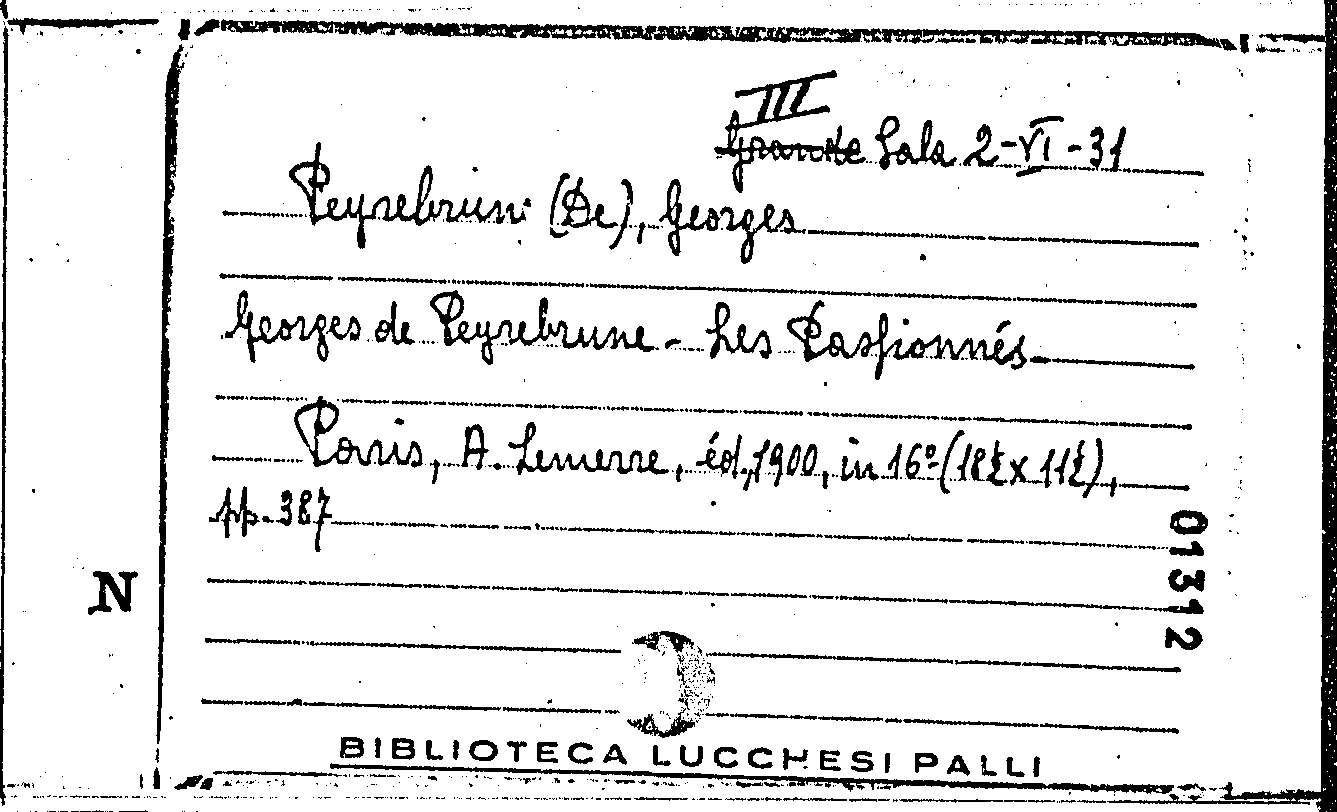 III
Grande Sala 2-VI-31
Peyrebrune (De), Georges
Georges de Peyrebrune - Les Passionnés
Paris, A. Lemerre, éd., 1900, in 16º (18½ x 11½),
pp. 387
01312
N
BIBLIOTECA LUCCHESI PALLI